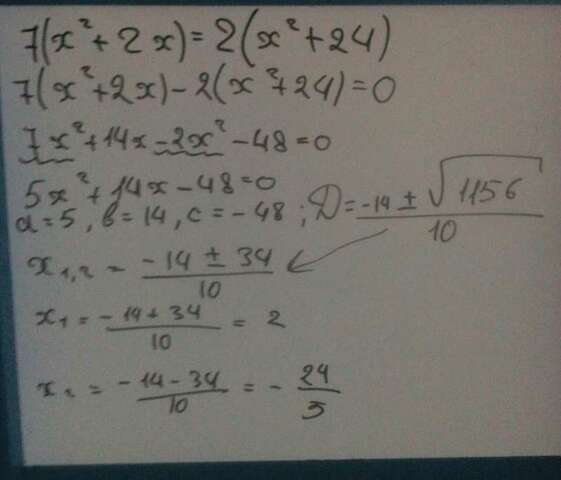 7(x²+2x)=2(x²+24)
7(x²+2x)-2(x²+24)=0
7x²+14x-2x²-48=0
5x²+14x-48=0
a=5, b=14, c=-48; D=(-14±√1156)/10
x₁,₂=(-14±34)/10
x₁=(-14+34)/10=2
x₂=(-14-34)/10=-24/5